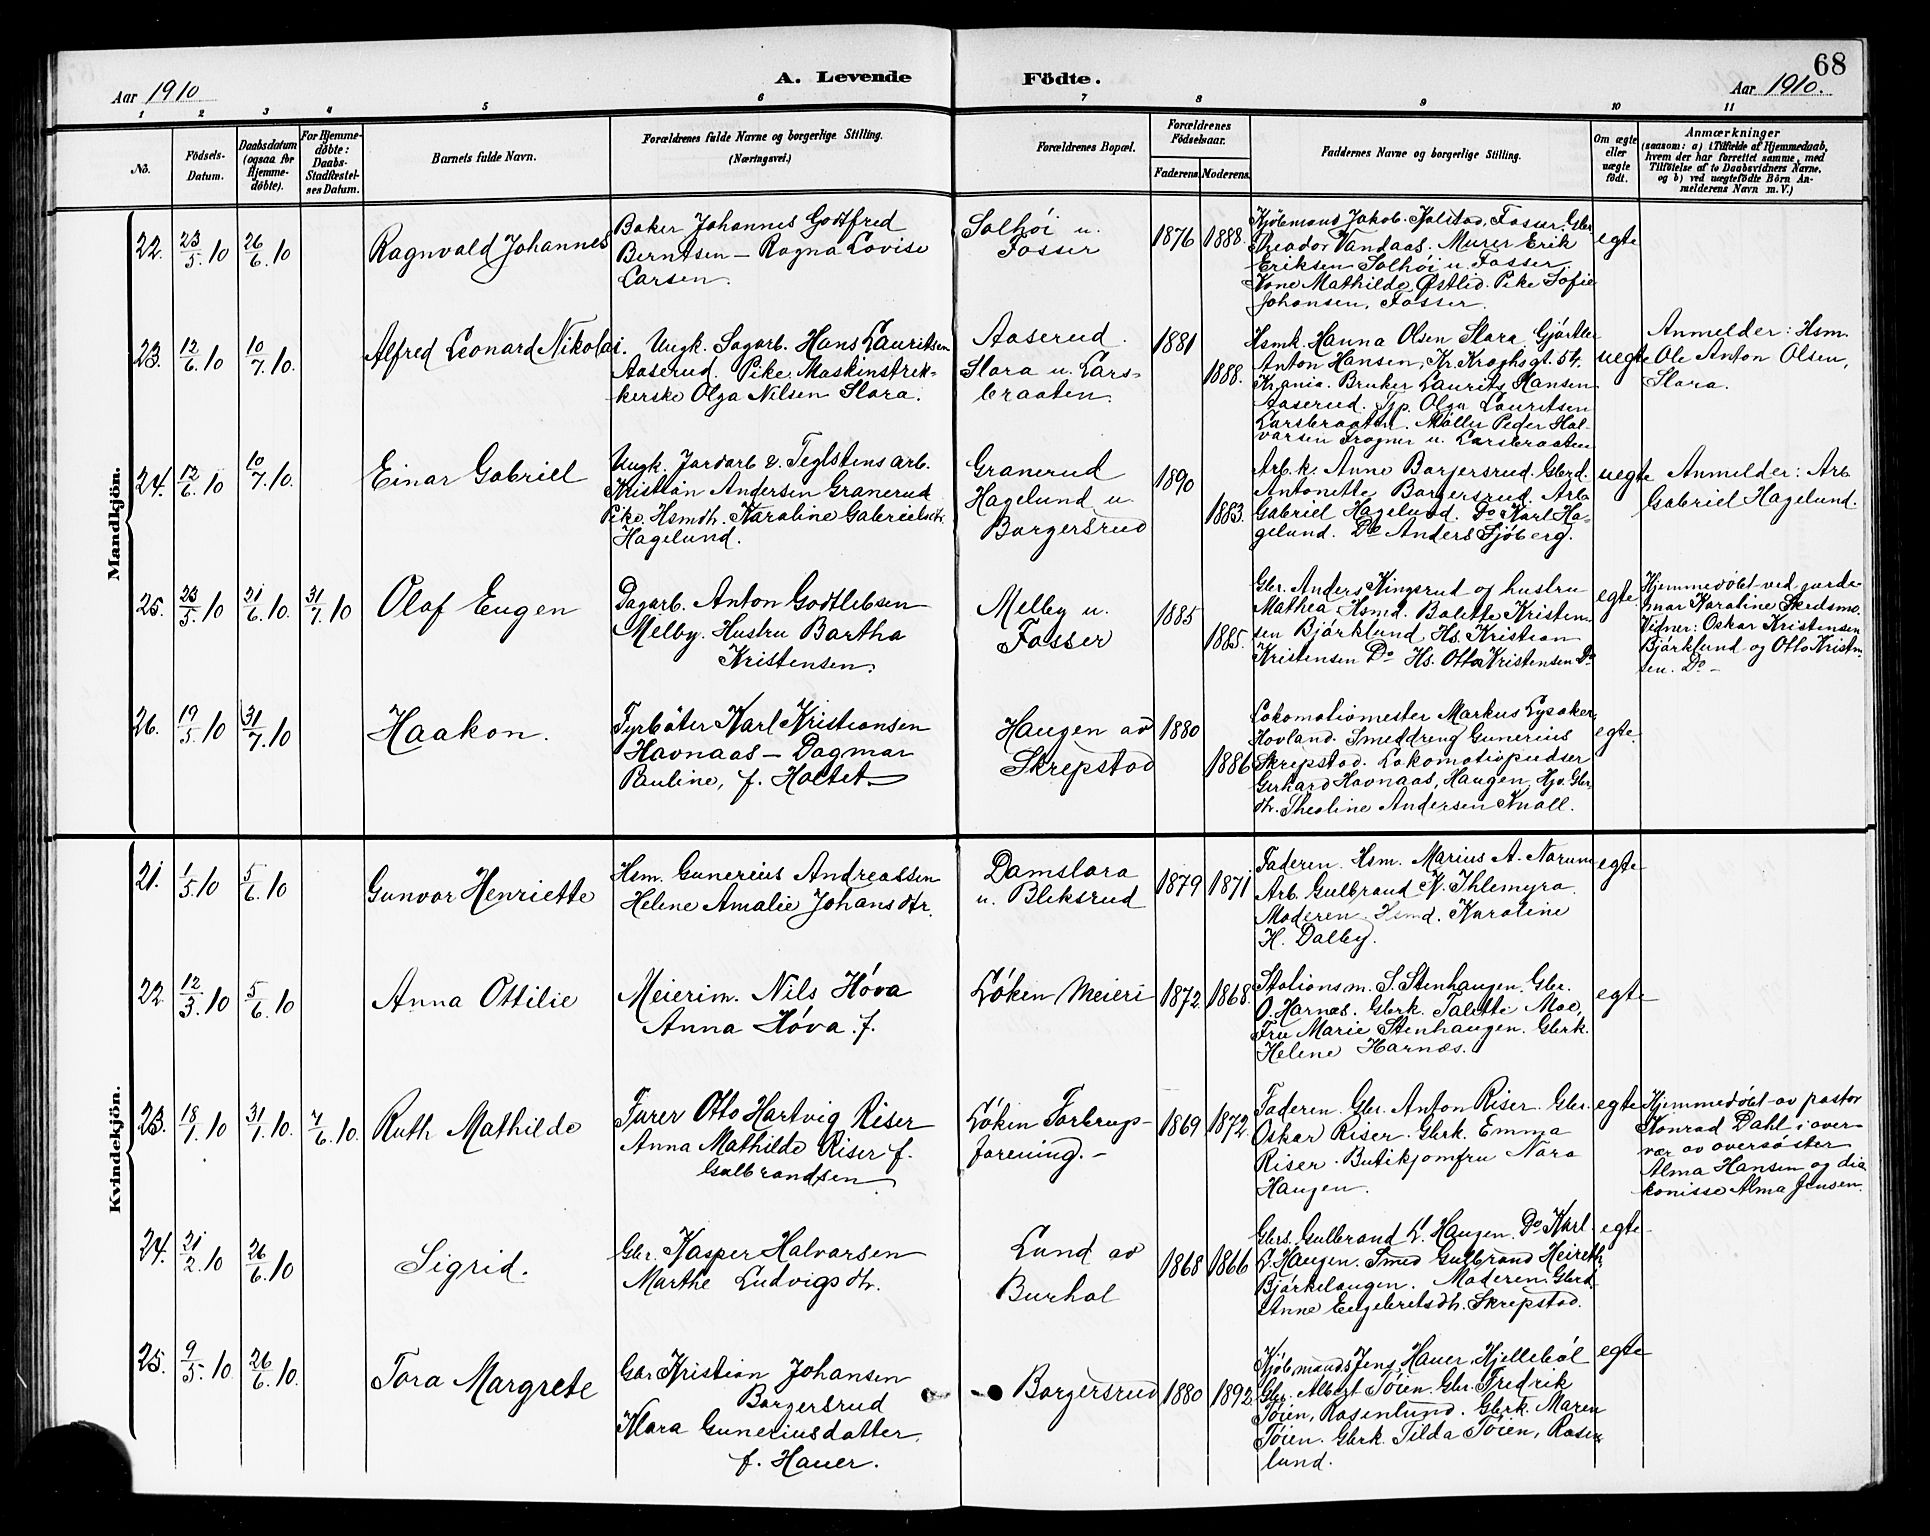 68
Aar 1910
A. Levende Födte.
Aar 1910.
1 2 3 4 5 6 7 8 9 10 11
No.
Födsels-
Datum.
Daabsdatum
(ogsaa for
Hjemme-
döbte).
For Hjemme-
döbte:
Daabs-
Stadfæstel-
ses Datum.
Barnets fulde Navn.
Forældrenes fulde Navne og borgerlige Stilling.
(Næringsvei.)
Forældrenes Bopæl.
Forældrenes
Födselsaar.
Faderens Moderens.
Faddernes Navne og borgerlige Stilling.
Om ægte
eller
uægte
födt.
Anmærkninger
(saasom: a) i Tilfælde af Hjemmedaab,
hvem der har forrettet samme, med
Tilföielse af to Daabsvidners Navne.
og b) ved uægtefödte Börn An-
melderens Navn m. V.)
Mandkjön.
22. 23/5.10 26/6.10
Ragnvald Johannes
Baker Johannes Godtfred
Berntsen – Ragna Lovise
Larsen.
Solhöi u.
Fosser
1876 1888.
Kjöbmand Jakob Kjolstad, Fosser. Gbr.
Theodor Vandaas. Murer Erik
Eriksen Solhöi u. Fosser.
Kone Mathilde Östlid. Pike Sofie
Johansen, Fosser.
egte
23. 12/6.10 10/7.10.
Alfred Leonard Nikolai.
Ungk. Sagarb. Hans Lauritsen
Aaserud. Pike. Maskinstrik-
kerske Olga Nilsen Slora.
Aaserud.
Slora u. Lars-
braaten.
1881 1888.
Hsmk. Hanna Olsen Slora. Gjörtler
Anton Hansen, Kr. Kroghsgt. 54.
Kr.ania. Bruker Laurits Hansen
Aaserud. Tjp. Olga Lauritsen
Larsbraaten. Möller Peder Hal-
varsen Frogner u. Larsbraaten
uegte
Anmelder: Hsm.
Ole Anton Olsen,
Slora.
24. 12/6.10 10/7.10.
Einar Gabriel
Ungk. Jordarb & Teglstensarb.
Kristian Andersen Granerud
Pike. Hsmdtr. Karoline Gabrielsdtr.
Hagelund.
Granerud
Hagelund u.
Borgersrud
1890 1883.
Arb.k. Anne Borgersrud. Gbrd.
Antonette Borgersrud. Arb.
Gabriel Hagelund. Do Karl Ha-
gelund. Do Anders Sjöberg.
uegte
Anmelder: Arb.
Gabriel Hagelund.
25. 23/5.10 21/6.10. 31/7.10
Olaf Eugen
Dagarb. Anton Godtlebsen
Melby. Hustru Bartha
Kristensen.
Melby u.
Fosser
1885 1885.
Gbr. Anders Kingsrud og hustru
Mathea. Hsmd. Bolette Kristen-
sen Björklund. Hs. Kristian
Kristensen Do. Hs. Otto Kristensen Do
egte
Hjemmedöbt ved jorde-
mor Karoline Skedsmo.
Vidner: Oskar Kristensen
Björklund og Otto Kristen-
sen. Do –
26. 19/5.10 31/7.10
Haakon.
Fyrböter Karl Kristiansen
Havnaas – Dagmar
Pauline, f. Holtet
Haugen av
Skrepstad
1880 1886
Lokomotivmester Markus Lysaker,
Hovland. Smeddreng Gunerius
Skrepstad. Lokomotivpudser
Gerhard Havnaas, Haugen, Hjv. Gbr.
dtr. Theoline Andersen Knoll.
egte.
Kvindekjön.
21. 1/5.10 5/6.10
Gunvor Henriette
Hsm. Gunerius Andreassen
Helene Amalie Johansdtr.
Damslora
u. Bleksrud
1879 1871
Faderen. Hsm. Marius A. Norum
Arb. Gulbrand K. Ihlemyra.
Moderen. Hsmd. Karoline
H. Dalby.
egte
22 12/3.10 5/6.10
Anna Ottilie
Meierim. Nils Höva
Anna Höva. f.
Löken Meieri
1872. 1868.
Stationsm. S. Stenhaugen. Gbr.
O. Harnæs. Gbrk. Talette Moe,
Fru Marie Stenhaugen. Gbrk.
Helene Harnæs.
egte
23. 18/1.10 31/1.10. 7/6.10.
Ruth Mathilde
Furer Otto Hartvig Riser
Anna Mathilde Riser f.
Gulbrandsen
Löken Forbrugs-
forening. –
1869 1872.
Faderen. Gbr. Anton Riser. Gbr.
Oskar Riser. Gbrk. Emma
Riser. Butikjomfru Nora
Haugen.
egte
Hjemmedöbt av pastor
Konrad Dahl i over-
vær av oversöster
Alma Hansen og dia-
konisse Alma Jensen.
24. 21/2.10 26/6.10
Sigrid.
Gbr. Kasper Halvorsen
Marthe Ludvigsdtr.
Lund av
Burhol
1868 1866
Gbrs. Gulbrand L. Haugen. Do Karl
L. Haugen. Smed Gulbrand
Björkelangen. Moderen. Gbrd.
Anne Engebretsdtr. Skrepstad.
egte
25. 9/5.10 26/6.10.
Tora Margrete
Gbr Kristian Johansen
Borgersrud
Klara Guneriusdatter
f. Hauer.
Borgersrud
1880 1892
Kjöbmands Jens Hauer, Hjelleböl
Gbr. Albert Töien. Gbr. Fredrik
Töien, Rosenlund. Gbrk. Maren
Töien. Gbrk. Tilda Töien, Rosen-
lund.
egte